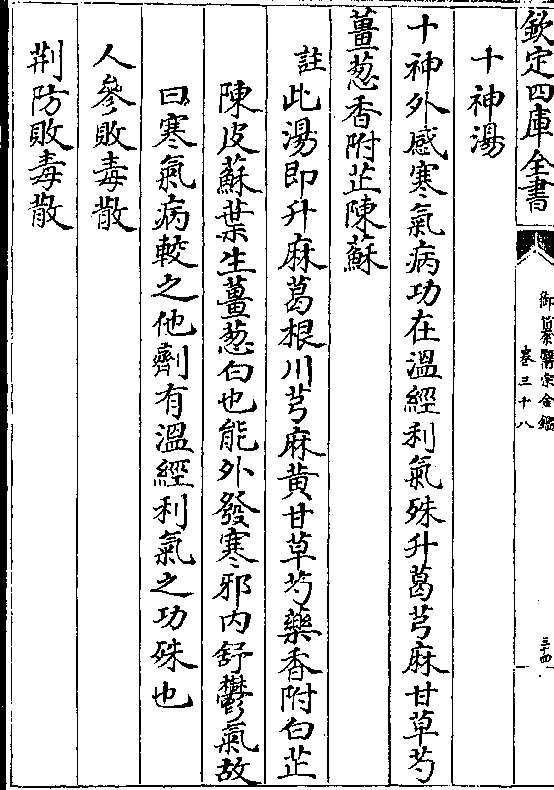 欽定四庫全書
御纂醫宗金鑑
卷三十八
三十四
十神湯
十神外感寒氣病功在溫經利氣殊升葛芎麻甘草芍
薑葱香附芷陳蘇
註此湯即升麻葛根川芎麻黃甘草芍藥香附白芷
陳皮蘇葉生薑葱白也能外發寒邪內舒鬱氣故
曰寒氣病較之他劑有溫經利氣之功殊也
人參敗毒散
荆防敗毒散